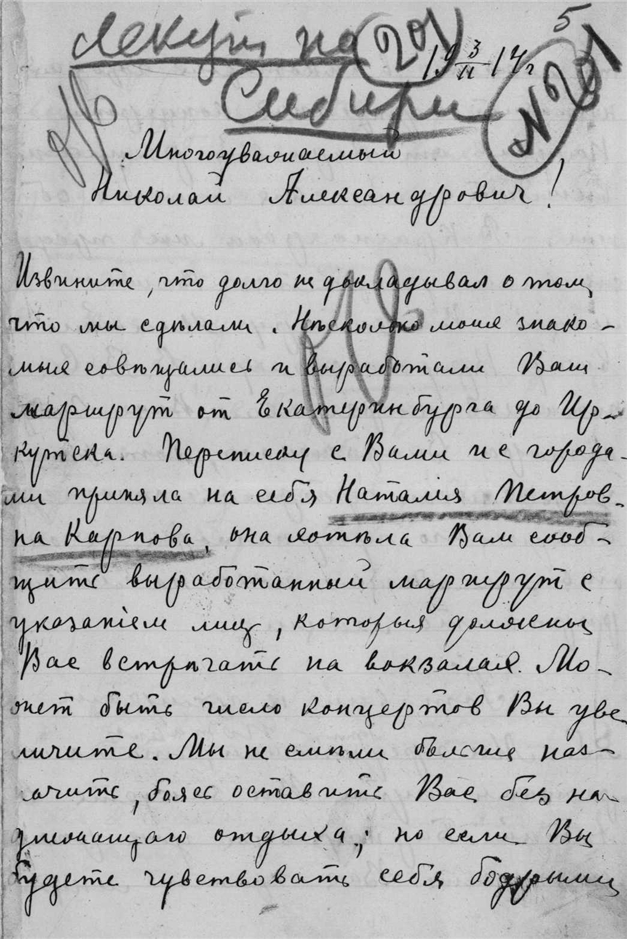 5
Лекции по
201
19 3/II 14 г
Сибири
№ 201
Многоуважаемый
Николай Александрович!
Извините, что долго не докладывал о том,
что мы сдѣлали. Нѣсколько моихъ знако-
мыхъ совѣщались и выработали Ваш
маршрут от Екатеринбурга до Ир-
кутска. Переписку с Вами и с города-
ми приняла на себя Наталія Петров-
на Карпова, она хотѣла Вам сооб-
щить выработанный маршрут с
указаніем лиц, которыя должны
Вас встрѣчать на вокзалах. Мо-
жет быть число концертов Вы уве
личите. Мы не смѣли больше наз-
начить, боясь оставить Вас без на
длежащаго отдыха; но если Вы
будете чувствовать себя бодрыми